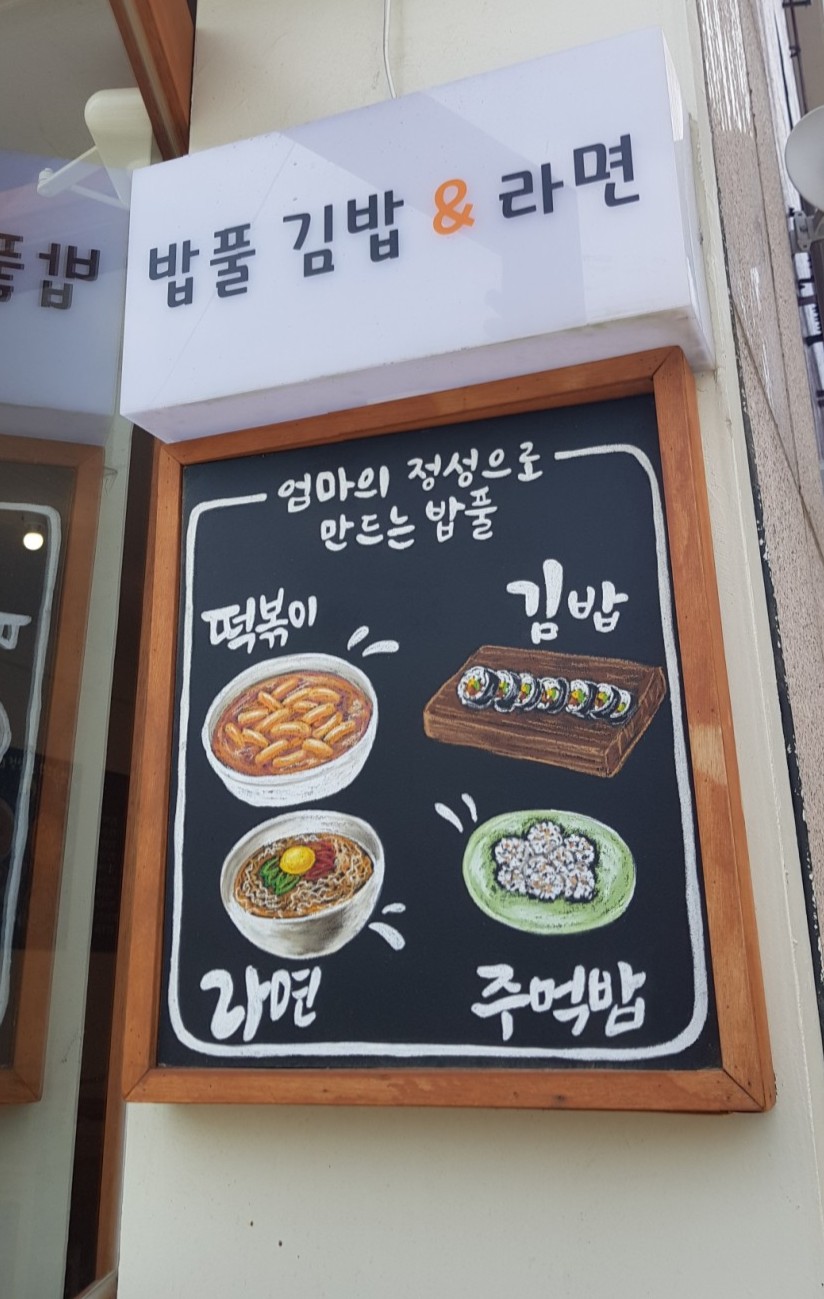 밥풀 김밥 & 라면
엄마의 정성으로
만드는 밥풀
떡볶이
김밥
라면
주먹밥